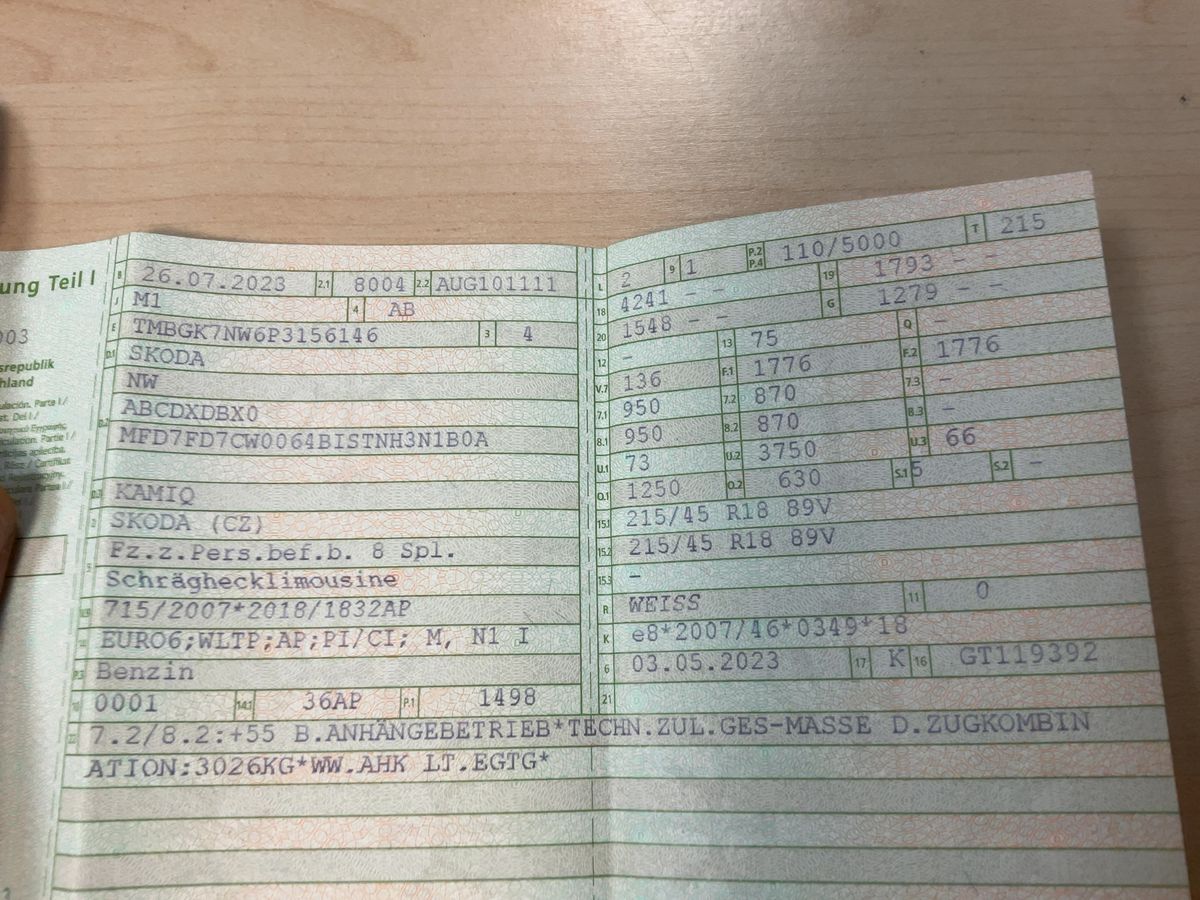 ung Teil I
003
srepublik
hland
B 26.07.2023 2.1 8004 2.2 AUG101111
J M1 4 AB
E TMBGK7NW6P3156146 3 4
D.1 SKODA
NW
D.2 ABCDXDBX0
MFD7FD7CW0064BISTNH3N1B0A
D.3 KAMIQ
2 SKODA (CZ)
5 Fz.z.Pers.bef.b. 8 Spl.
Schräghecklimousine
V.9 715/2007*2018/1832AP
14 EURO6;WLTP;AP;PI/CI; M, N1 I
P.3 Benzin
10 0001 14.1 36AP P.1 1498
22 7.2/8.2:+55 B.ANHÄNGEBETRIEB*TECHN.ZUL.GES-MASSE D.ZUGKOMBIN
ATION:3026KG*WW.AHK LT.EGTG*
L 2 9 1 P.2 P.4 110/5000 T 215
18 4241 – – 19 1793 – –
20 1548 – – G 1279 – –
12 – 13 75 Q –
V.7 136 F.1 1776 F.2 1776
7.1 950 7.2 870 7.3 –
8.1 950 8.2 870 8.3 –
U.1 73 U.2 3750 U.3 66
O.1 1250 O.2 630 S.1 5 S.2 –
15.1 215/45 R18 89V
15.2 215/45 R18 89V
15.3 –
R WEISS 11 0
K e8*2007/46*0349*18
6 03.05.2023 17 K 16 GT119392
21